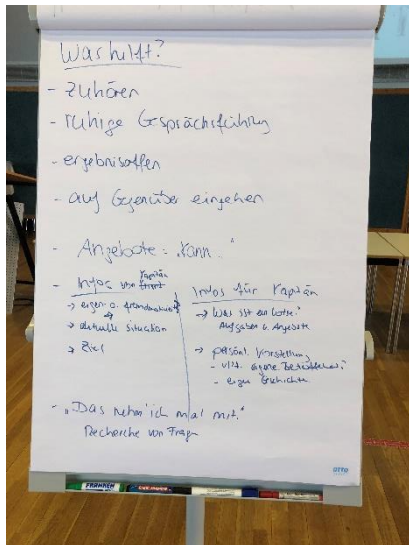 Was hilft?
- zuhören
- ruhige Gesprächsführung
- ergebnisoffen
- auf Gegenüber eingehen
- Angebote: "Kann"
- Infos von Kapitän
→ eigen- o. fremdmotiviert
→ aktuelle Situation
→ Ziel
Infos für Kapitän
→ Was ist ein Lotse?
Aufgaben u. Angebote
→ persönl. Vorstellung
- vllt. eigene Betroffenheit?
- eigene Geschichte
- "Das nehm' ich mal mit."
Recherche von Fragen
FRANKEN